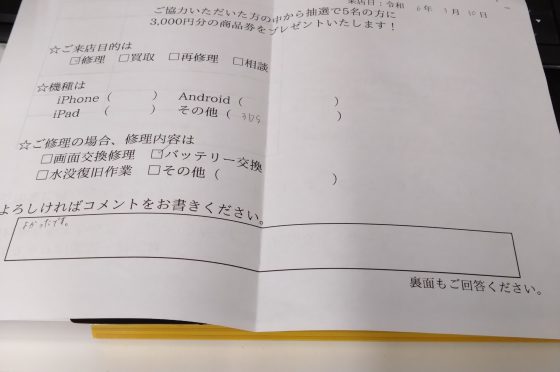 来店日：令和 6年 3月 10日
ご協力いただいた方の中から抽選で5名の方に
3,000円分の商品券をプレゼントいたします！
☆ご来店目的は
☑修理 □買取 □再修理 □相談
☆機種は
iPhone（ ） Android（ ）
iPad （ ） その他（ 3DS ）
☆ご修理の場合、修理内容は
□画面交換修理 ☑バッテリー交換
□水没復旧作業 □その他（ ）
よろしければコメントをお書きください。
よかったです。
裏面もご回答ください。